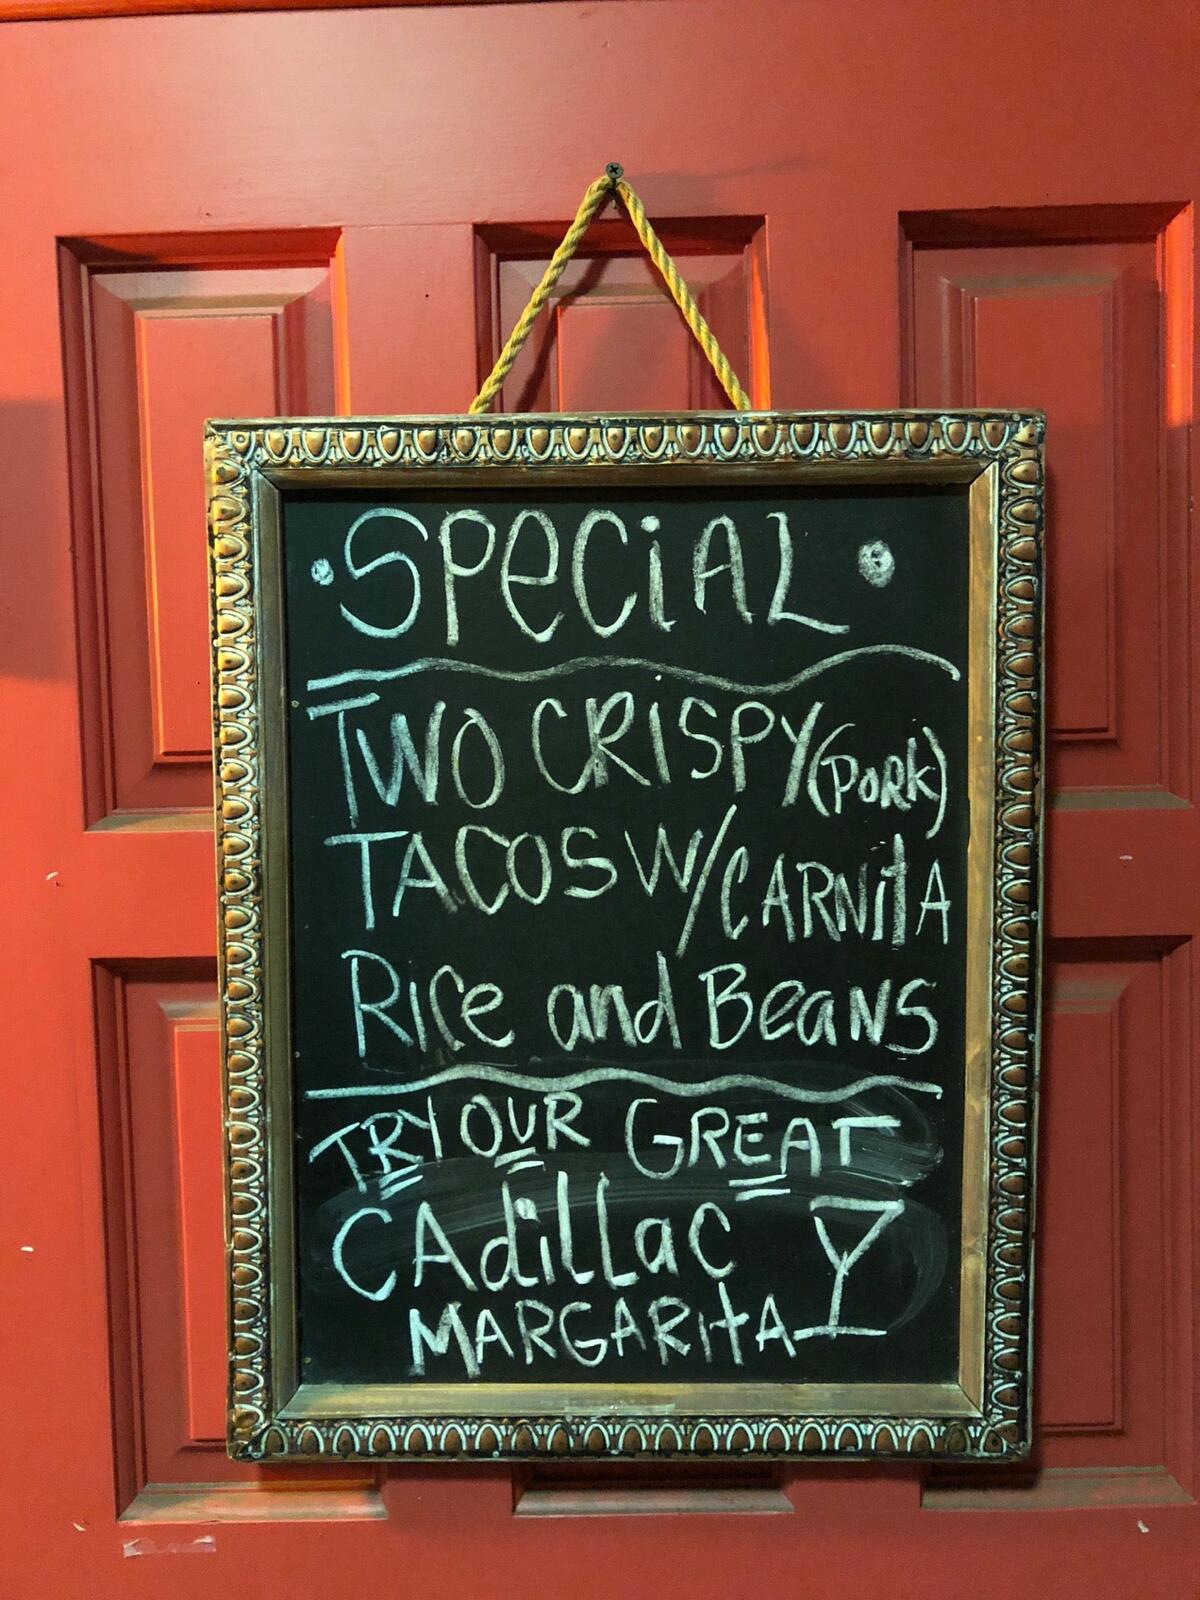 • SPeCiAL •
TWO CRiSPY (PORK)
TACOS W/ CARNitA
Rice and BeaNS
TRY OUR GREAT
CAdiLLac
MARGARitA